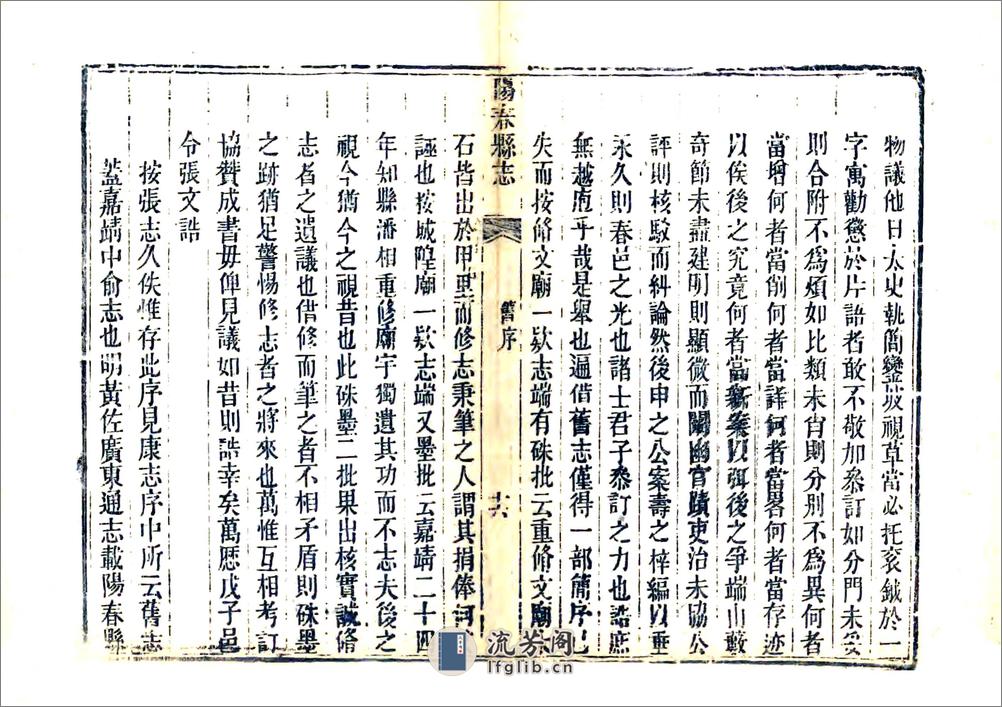 物議他日太史執簡鑾坡視草當必托衮鉞於一
字寓勸懲於片語者敢不敬加叅訂如分門未妥
則合附不爲煩如比類未肖則分別不爲異何者
當增何者當削何者當詳何者當畧何者當存迹
以俟後之究竟何者當斷案以弭後之爭端山藪
奇節未盡建明則顯微而闡幽宦蹟吏治未協公
評則核駁而糾論然後申之公案壽之梓編以垂
永久則春邑之光也諸士君子叅訂之力也誥庶
無越庖乎哉是舉也遍借舊志僅得一部簡序已
失而按脩文廟一欵志端有硃批云重脩文廟
陽春縣志
舊序
十六
石皆出於甲里而修志秉筆之人謂其捐俸
誣也按城隍廟一欵志端又墨批云嘉靖二十四
年知縣潘相重修廟宇獨遺其功而不志夫後之
視今猶今之視昔也此硃墨二批果出核實誠脩
志者之遺議也借修而筆之者不相矛盾則硃墨
之跡猶足警惕修志者之將來也萬惟互相考訂
協贊成書毋俾見議如昔則誥幸矣萬歷戊子邑
令張文誥
按張志久佚惟存此序見康志序中所云舊志
葢嘉靖中俞志也明黃佐廣東通志載陽春縣
流芳阁
lfglib.cn